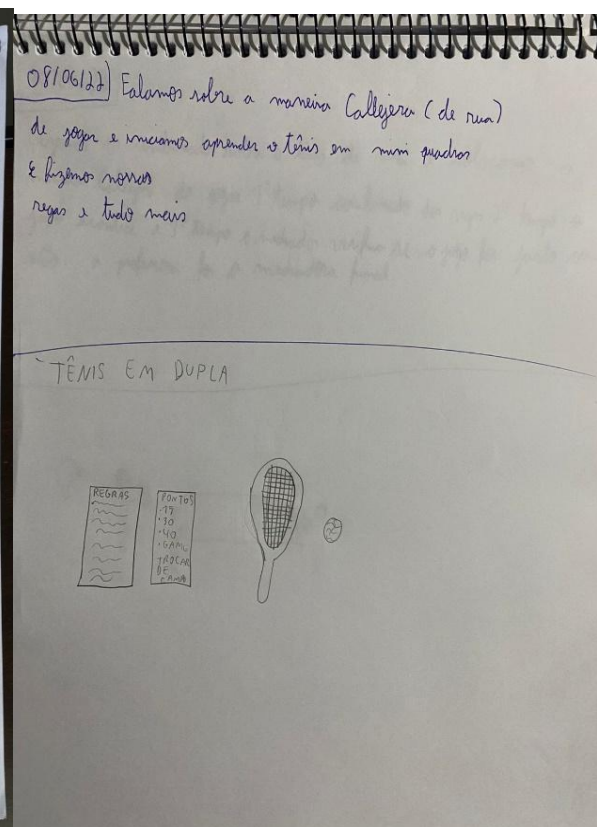 08/06/22 Falamos sobre a maneira Callejera (de rua)
de jogar e iniciamos aprender o tênis em mini quadras
E fizemos nossas
regas e tudo mais
TÊNIS EM DUPLA
REGRAS
PONTOS
·15
·30
·40
·GAME
TROCAR
DE